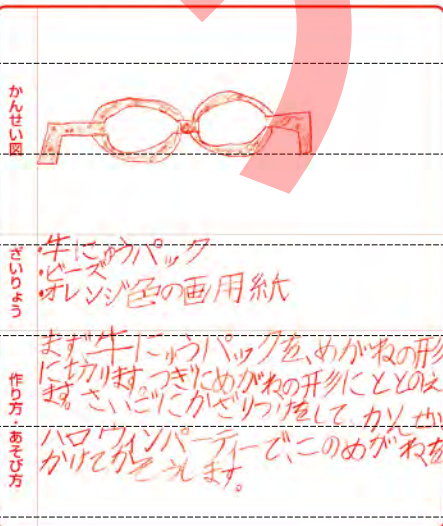 かんせい図
ざいりょう
・牛にゅうパック
・ビーズ
・オレンジ色の画用紙
作り方・あそび方
まず牛にゅうパックを、めがねの形
に切ります。つぎにめがねの形にととのえ
ます。さいごにかざりつけをして、かんせい
ハロウィンパーティーで、このめがねを
かけてかそうします。